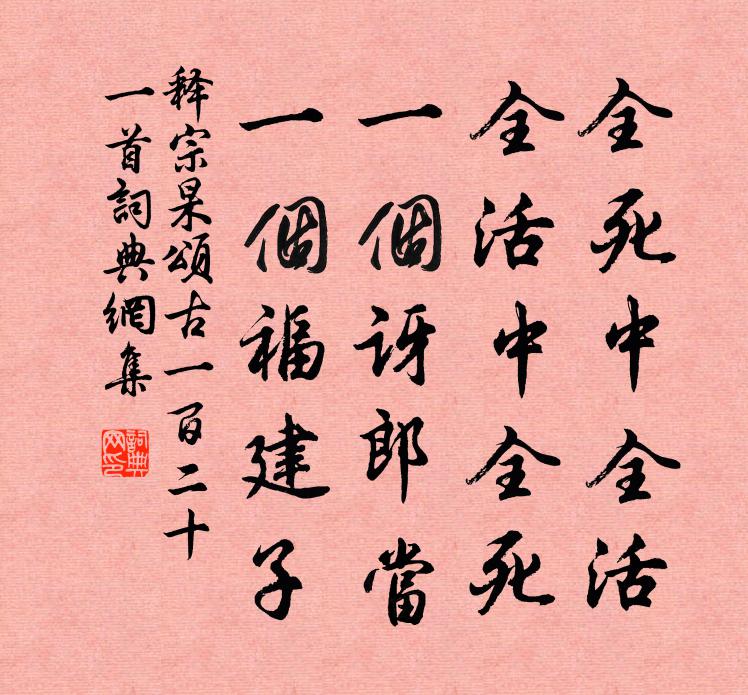 全死中全活
全活中全死
一個訝郎當
一個福建子
释宗杲頌古一百二十
一首詞典網集
詞典网印